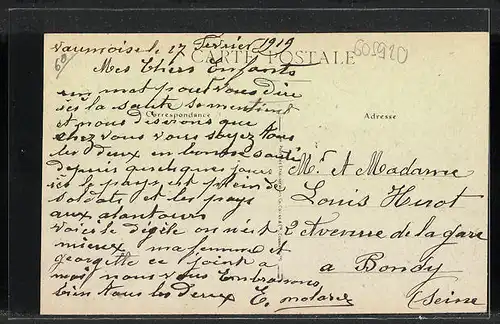 Vaumoise le 17 Fevrier 1919
CARTE POSTALE
605920
60
Mes Chers Enfants
un mot pour vous dire
que la santé se maintient
et nous désirons que
Correspondance
Adresse
chez vous vous soyez tous
les deux en bonne santé
depuis quelques jours
le pays est plein de
soldats et les pays
aux alentours
voici le dégèle on n'est
mieux ma femme et
georgette ce joint a
moi nous vous Embrasons
bien tous les deux E.
Mr et Madame
Louis Huot
2 Avenue de la gare
a Bondy
(Seine